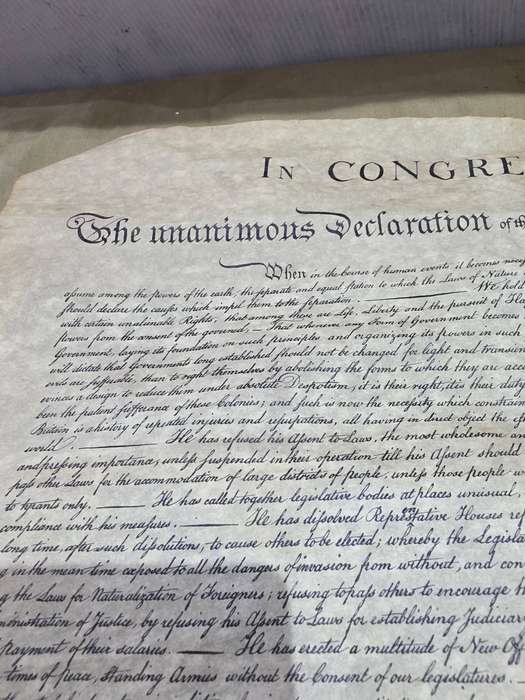 IN CONGRE
The unanimous Declaration of th
When in the Course of human events, it becomes nece
assume among the powers of the earth, the separate and equal station to which the Laws of Nature
should declare the causes which impel them to the separation. We hold
with certain unalienable Rights, that among these are Life, Liberty and the pursuit of Ha
powers from the consent of the governed, — That whenever any Form of Government becomes
Government, laying its foundation on such principles and organizing its powers in such
will dictate that Governments long established should not be changed for light and transien
evils are sufferable, than to right themselves by abolishing the forms to which they are accu
evinces a design to reduce them under absolute Despotism, it is their right, it is their duty
been the patient sufferance of these Colonies; and such is now the necessity which constrain
Britain is a history of repeated injuries and usurpations, all having in direct object the es
world. He has refused his Assent to Laws, the most wholesome an
and pressing importance, unless suspended in their operation till his Assent should
pass other Laws for the accommodation of large districts of people, unless those people w
to tyrants only. He has called together legislative bodies at places unusual,
compliance with his measures. He has dissolved Representative Houses rep
long time, after such dissolutions, to cause others to be elected; whereby the Legisla
g in the mean time exposed to all the dangers of invasion from without, and con
g the Laws for Naturalization of Foreigners; refusing to pass others to encourage th
ministration of Justice, by refusing his Assent to Laws for establishing Judiciar
payment of their salaries. He has erected a multitude of New Off
times of peace, Standing Armies without the Consent of our legislatures.